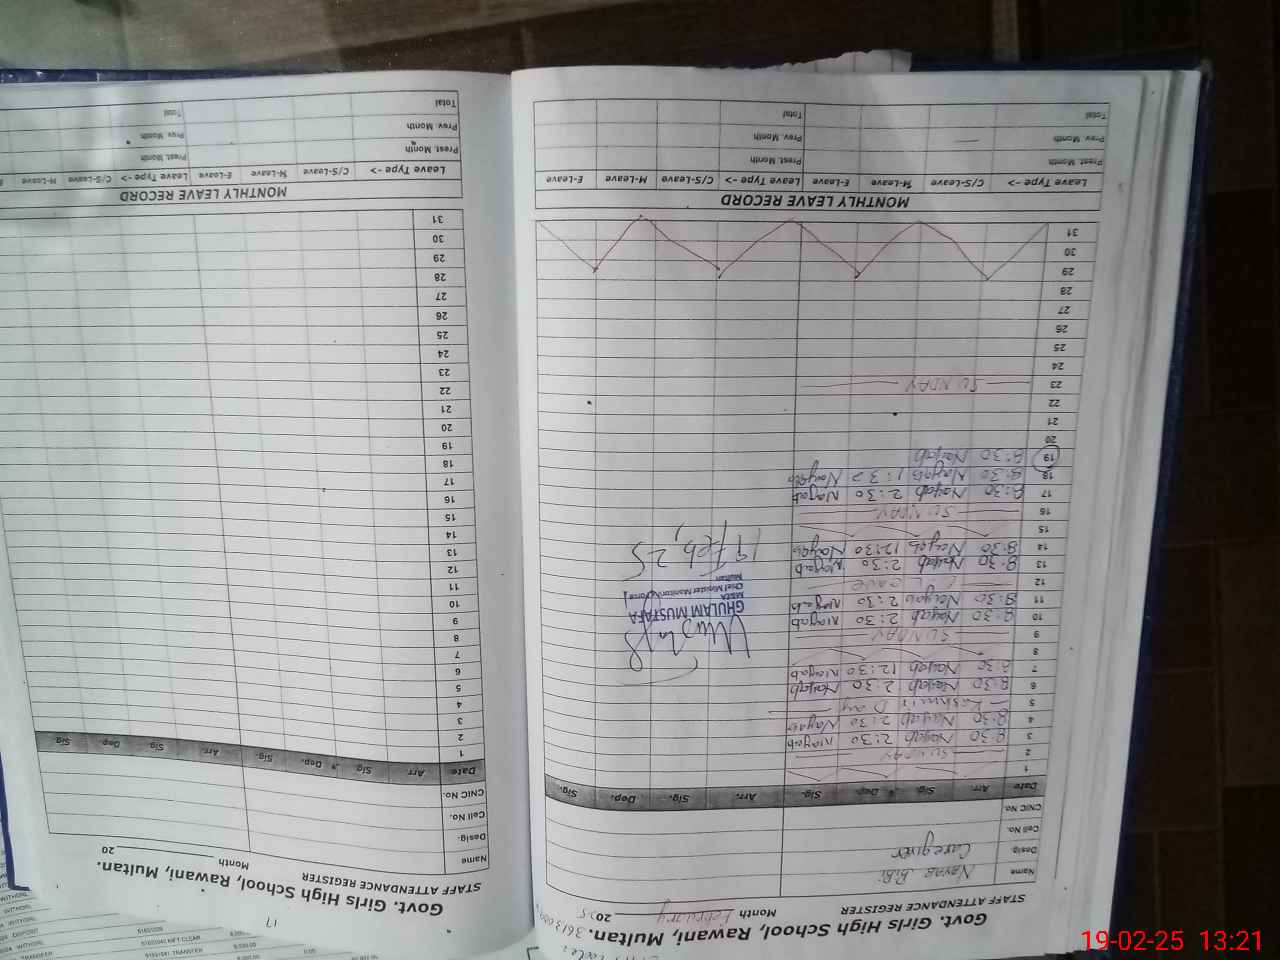 Govt. Girls High School, Rawani, Multan.
STAFF ATTENDANCE REGISTER
Month February 2025
Name Nayab BiBi
Desig. Caregiver
Cell No.
CNIC No.
Date Arr. Sig. Dep. Sig. Arr. Sig. Dep. Sig.
1
2 SUNDAY
3 8:30 Nayab 2:30 Nayab
4 8:30 Nayab 2:30 Nayab
5 Kashmir Day
6 8:30 Nayab 2:30 Nayab
7 8:30 Nayab 12:30 Nayab
8
9 SUNDAY
10 8:30 Nayab 2:30 Nayab
11 8:30 Nayab 2:30 Nayab
12 Leave
13 8:30 Nayab 2:30 Nayab
14 8:30 Nayab 12:30 Nayab
15
16 SUNDAY
17 8:30 Nayab 2:30 Nayab
18 8:30 Nayab 1:32 Nayab
19 8:30 Nayab
20
21
22
23 SUNDAY
24
25
26
27
28
29
30
31
GHULAM MUSTAFA
MEA
Chief Minister Monitoring Force
Multan
19 Feb, 25
MONTHLY LEAVE RECORD
Leave Type -> C/S-Leave M-Leave E-Leave Leave Type -> C/S-Leave M-Leave E-Leave
Prest. Month Prest. Month
Prev. Month Prev. Month
Total Total
17
Govt. Girls High School, Rawani, Multan.
STAFF ATTENDANCE REGISTER
Month 20
Name
Desig.
Cell No.
CNIC No.
Date Arr. Sig. Dep. Sig. Arr. Sig. Dep. Sig.
1
2
3
4
5
6
7
8
9
10
11
12
13
14
15
16
17
18
19
20
21
22
23
24
25
26
27
28
29
30
31
MONTHLY LEAVE RECORD
Leave Type -> C/S-Leave M-Leave E-Leave Leave Type -> C/S-Leave M-Leave E
Prest. Month Prest. Month
Prev. Month Prev. Month
Total Total
19-02-25 13:21